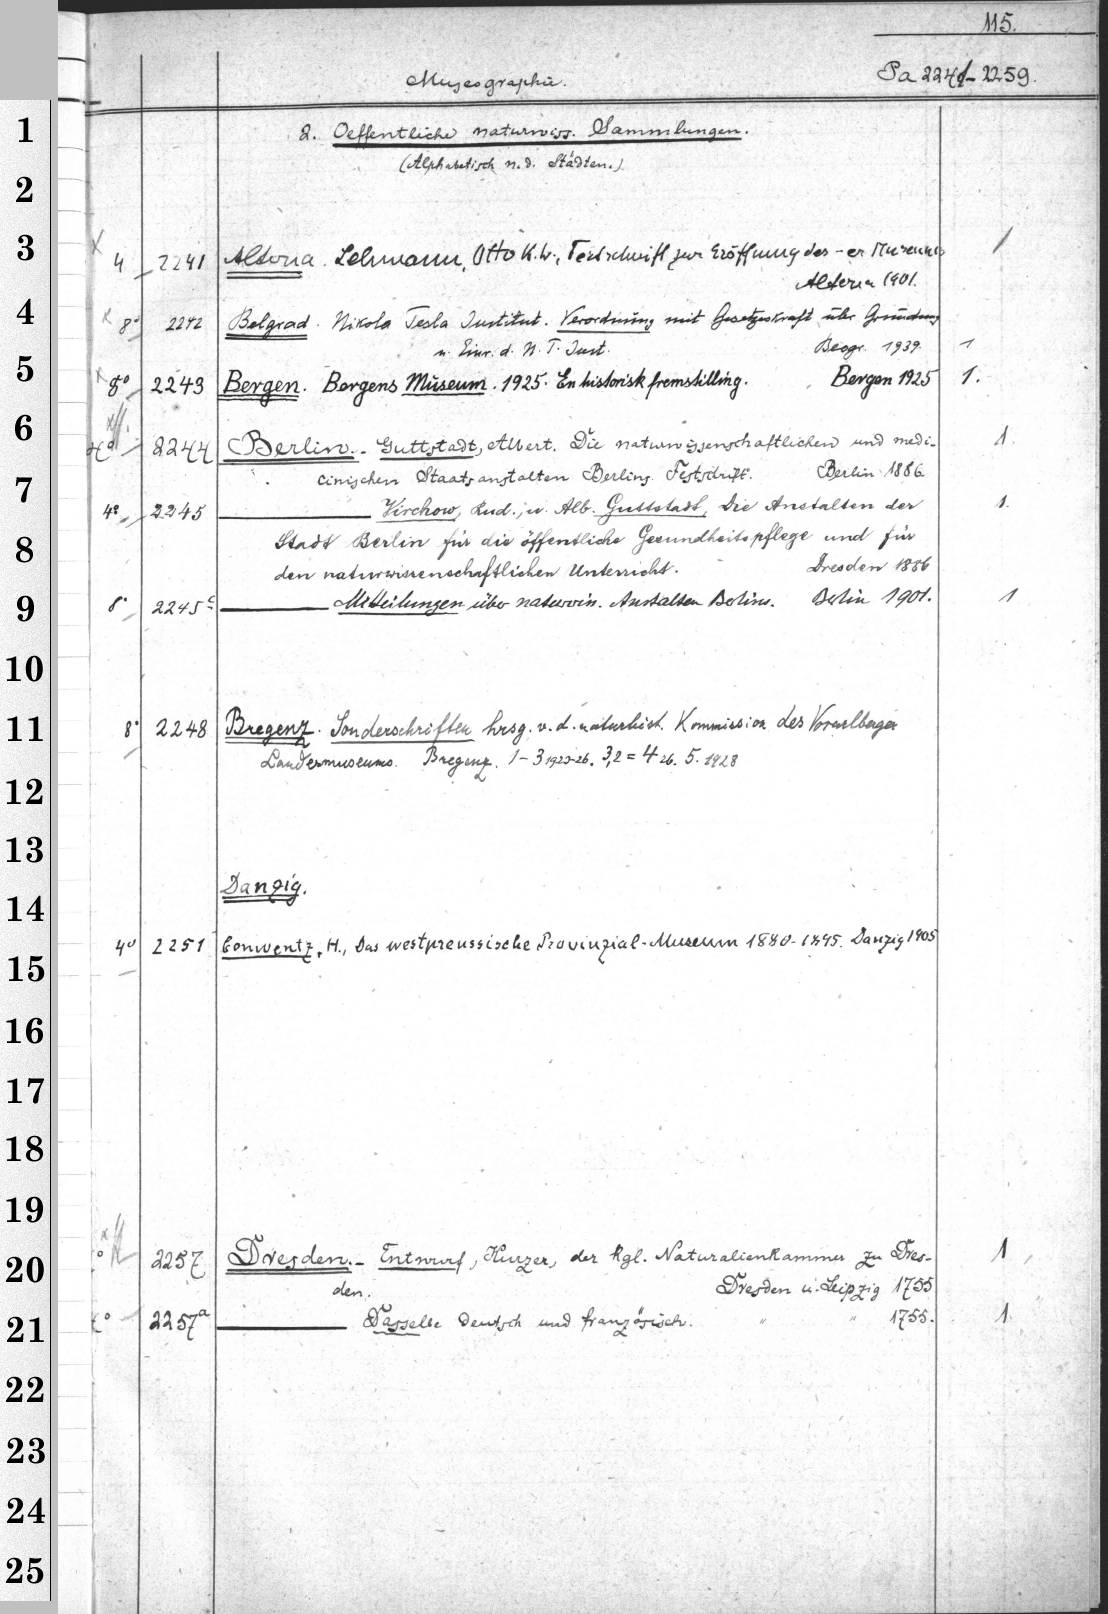 115.
Museographie. Pa 2241-2259.
1
2. Oeffentliche naturwiss. Sammlungen.
(Alphabetisch n. d. Städten.)
2
3
4 2241 Altona. Lehmann, Otto K.W., Festschrift zur Eröffnung des -er Museums 1
Altona 1901.
4
8° 2242 Belgrad. Nikola Tesla Institut. Verordnung mit Gesetzeskraft über Gründung
u. Einr. d. N. T. Inst. Beogr. 1939. 1
5
8° 2243 Bergen. Bergens Museum. 1925. En historisk fremstilling. Bergen 1925 1.
6
4° 2244 Berlin.- Guttstadt, Albert. Die naturwissenschaftlichen und medi- 1.
cinischen Staatsanstalten Berlins. Festschrift. Berlin 1886
7
4° 2245 Virchow, Rud., u. Alb. Guttstadt, Die Anstalten der 1.
8
Stadt Berlin für die öffentliche Gesundheitspflege und für
den naturwissenschaftlichen Unterricht. Dresden 1886
9
8° 2245c Mitteilungen über naturwin. Anstalten Berlins. Berlin 1901. 1
10
11
8° 2248 Bregenz. Sonderschriften hrsg. v. d. naturhist. Kommission des Vorarlberger
Landesmuseums. Bregenz. 1-3 1923-26. 3,2 = 4 26. 5. 1928
12
13
14
Danzig.
15
4° 2251 Conwentz, H., Das westpreussische Provinzial-Museum 1880-1895. Danzig 1905
16
17
18
19
20
2257 Dresden.- Entwurf, Kurzer, der kgl. Naturalienkammer zu Dres- 1
den. Dresden u. Leipzig 1755
21
4° 2257a Dasselbe deutsch und französisch. " " 1755. 1
22
23
24
25